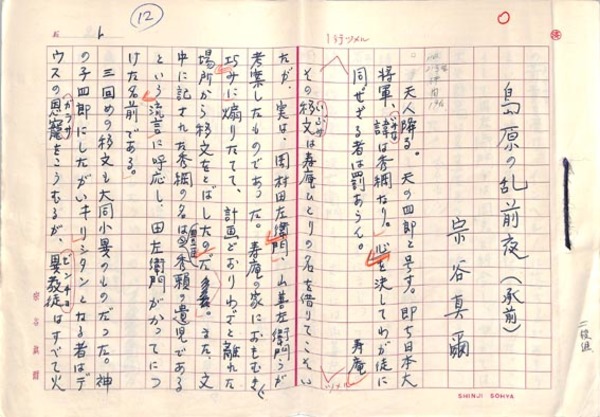 島原の乱前夜(承前)
宗谷真爾
天人降る。天の四郎と号す。即ち日本大
将軍、諱は秀綱なり。心を決してわが徒に
同ぜざる者は罰あらん。 寿庵
その移文は寿庵ひとりの名を借りてこそい
たが、実は、田村田左衛門、山善左衛門らが
考案したものであった。寿庵の家におもむき、
巧みに煽りたてて、計画どおりわざと離れた
場所から移文をとばしたのだ。また、文
中に記された秀綱の名は豊臣秀頼の遺児である
という流言に呼応し、田左衛門がかってにつ
けた名前である。
三回めの移文も大同小異のものだった。神
の子四郎にしたがいキリシタンとなる者はデ
ウスの恩寵をこうむるが、異教徒はすべて火
ガラサ
ゼンチョ
12
1行ツメル
ツメル
宗谷真爾
SHINJI SOHYA